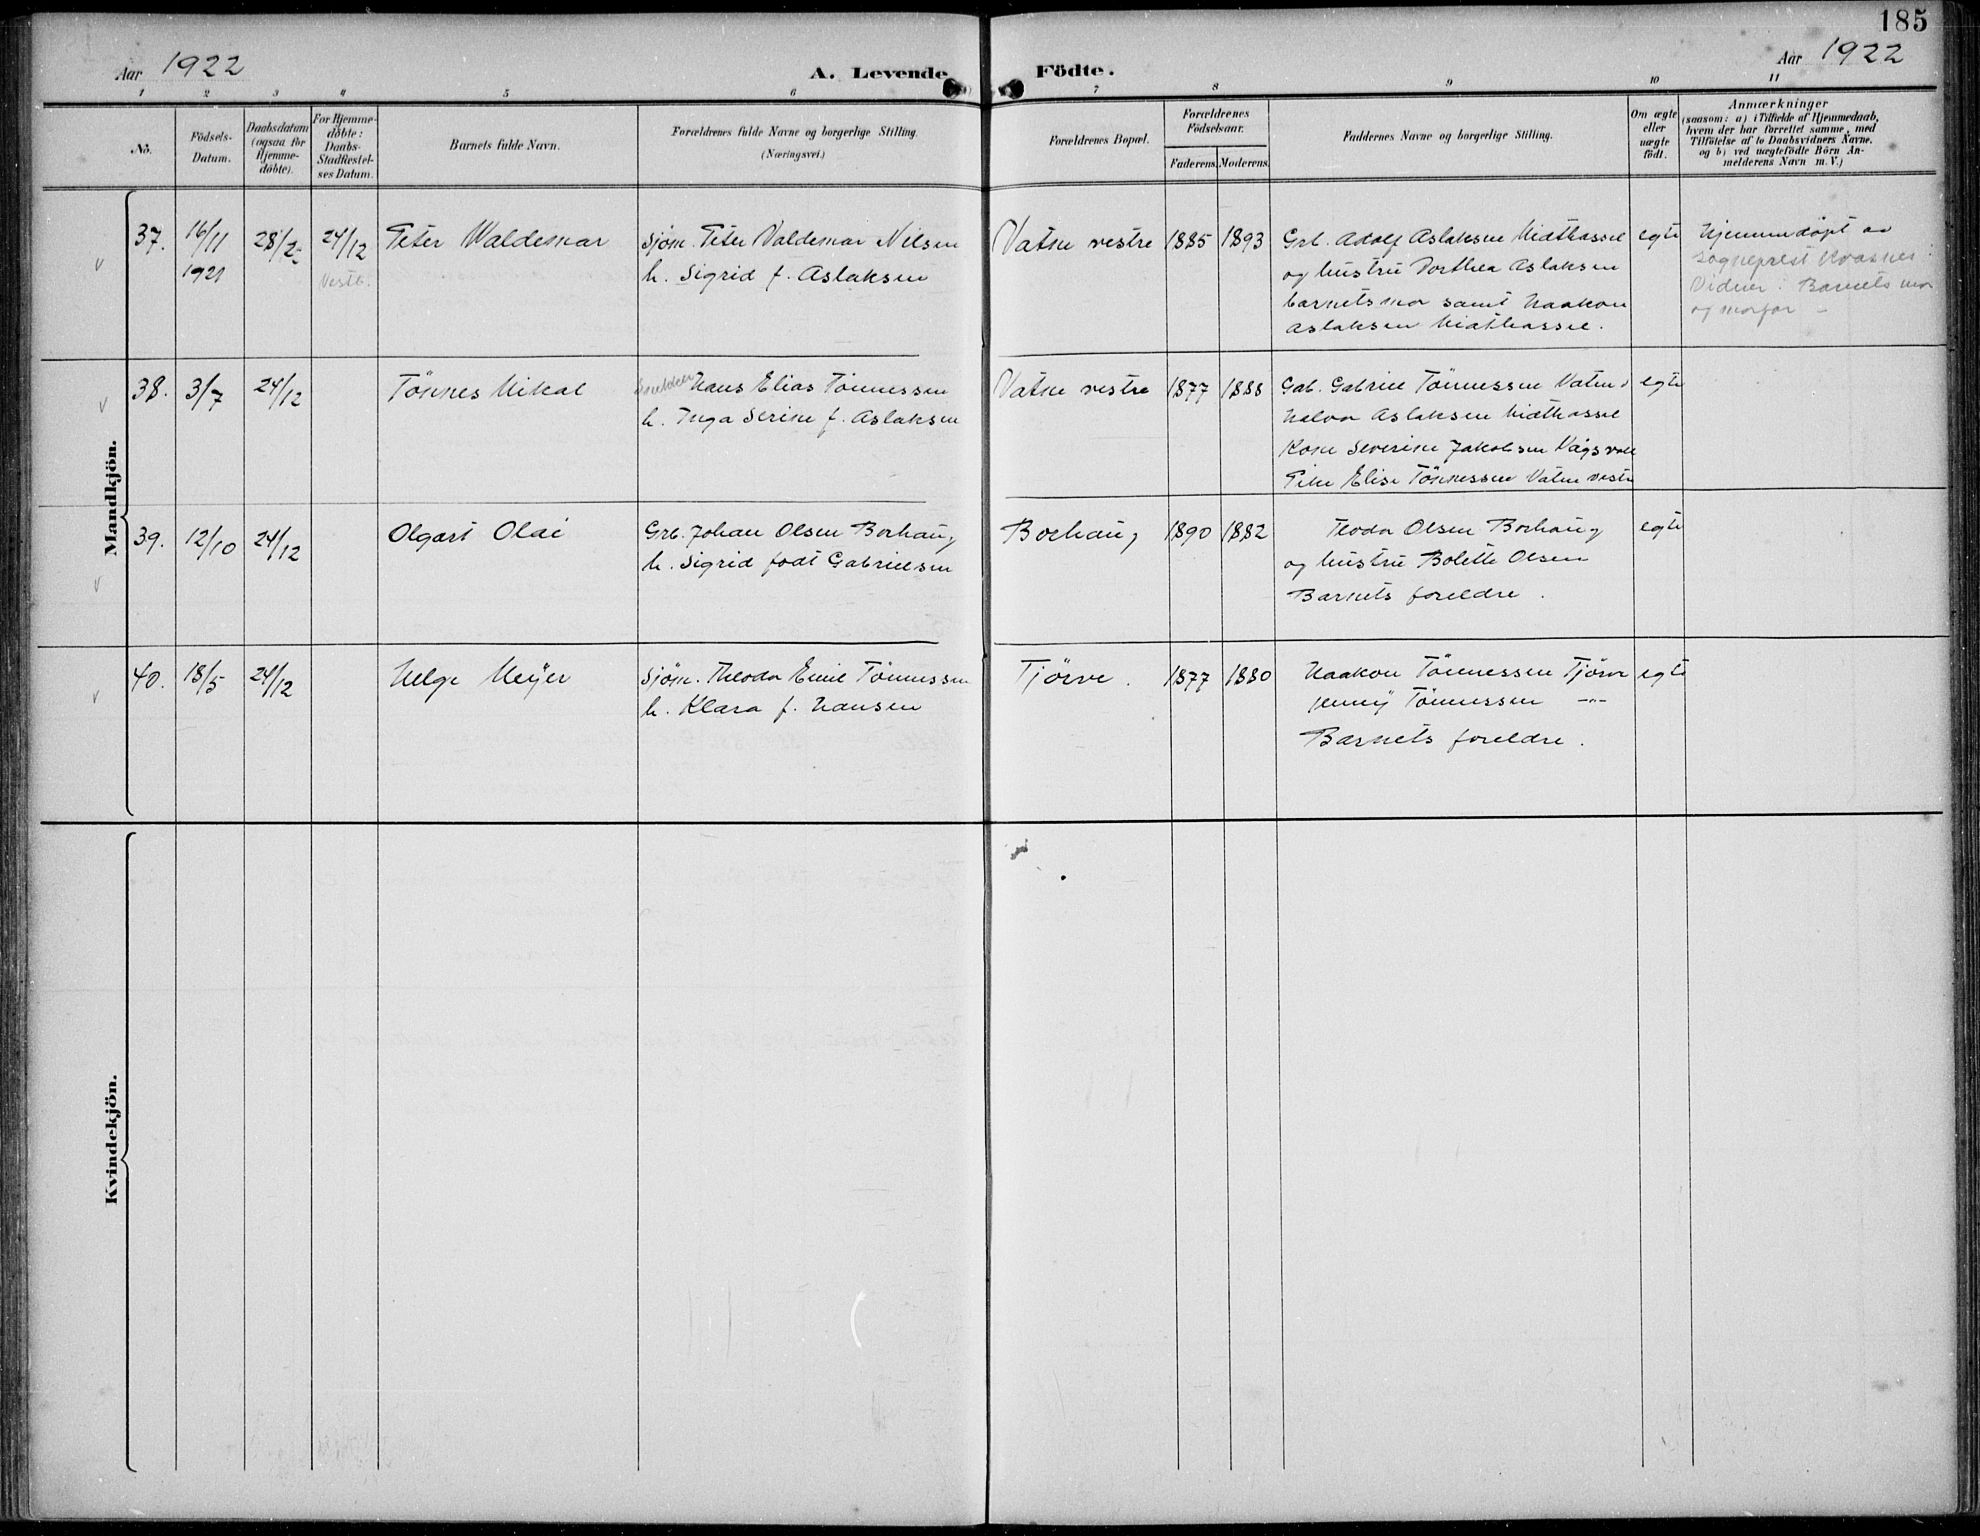 185
Aar 1922
A. Levende Födte.
Aar 1922
1 2 3 4 5 6 7 8 9 10 11
No.
Födsels-Datum.
Daabsdatum (ogsaa for Hjemme-döbte).
For Hjemme-döbte: Daabs-Stadfæstel-ses Datum.
Barnets fulde Navn.
Forældrenes fulde Navne og borgerlige Stilling.
(Næringsvei.)
Forældrenes Bopæl.
Forældrenes Födselsaar.
Faderens. Moderens.
Faddernes Navne og borgerlige Stilling.
Om ægte eller uægte födt.
Anmærkninger
(saasom: a) i Tilfælde af Hjemmedaab,
hvem der har forrettet samme, med
Tilföielse af to Daabsvidners Navne,
og b) ved uægtefödte Börn An-
melderens Navn m. V.)
Mandkjön.
37. 16/11 1921 28/2 24/12 Vestb. Peter Waldemar
Sjöm. Peter Valdemar Nilsen
h. Sigrid f. Aslaksen
Vatne vestre 1885 1893
Grb. Adolf Aslaksen Midthassel
og hustru Dorthea Aslaksen
barnets mor samt Haakon
Aslaksen Midthassel.
egte
Hjemmedøpt av
sogneprest Kvasnes
Vidner: Barnets mor
og morfar –
38. 3/7 24/12 Tönnes Mikal
Snekker Hans Elias Tönnessen
h. Inga Serine f. Aslaksen
Vatne vestre 1877 1888
Gab. Gabriel Tönnessen Vatne v
Halvor Aslaksen Midthassel
Kone Severine Jakobsen Vågsvoll
Pike Elise Tönnessen Vatne vestre
egte
39. 12/10 24/12 Olgart Olai
Grb. Johan Olsen Borhaug
h. Sigrid født Gabrielsen
Borhaug 1890 1882
Teodor Olsen Borhaug
og hustru Bolette Olsen
Barnets foreldre.
egte
40. 18/5 24/12 Helge Meÿer
Sjöm. Theodor Emil Tönnessen
h. Klara f. Hansen
Tjörve. 1877 1880
Haakon Tönnessen Tjörve
Jenny Tönnessen –"–
Barnets foreldre.
egte
Kvindekjön.